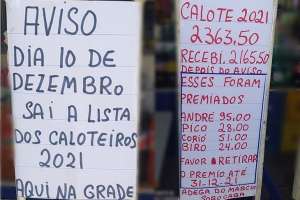 AVISO
DIA 10 DE
DEZEMBRO
SAI A LISTA
DOS CALOTEIROS
2021
AQUI NA GRADE
CALOTE 2021
2363,50
RECEBI. 2165,50
DEPOIS DO AVISO
ESSES FORAM
PREMIADOS
ANDRE 95.00
PICO 28.00
CORIO 51.00
BIRO 24.00
FAVOR RETIRAR
O PREMIO ATÉ
31-12-21
ADEGA DO MARCIO
SOROCABA